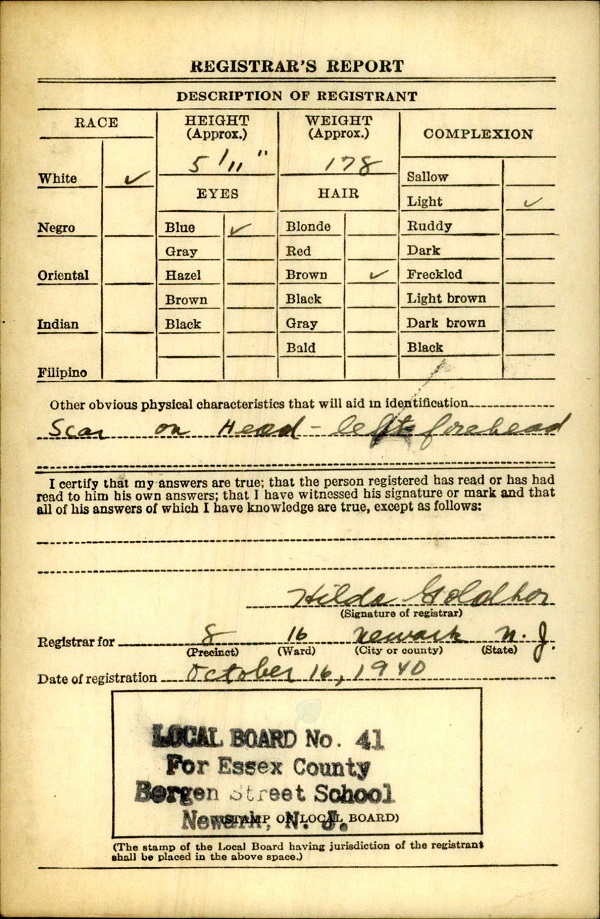 REGISTRAR'S REPORT
DESCRIPTION OF REGISTRANT
RACE
HEIGHT (Approx.)
WEIGHT (Approx.)
COMPLEXION
5' 11"
178
White ✓
EYES
HAIR
Sallow
Light ✓
Negro
Blue ✓
Blonde
Ruddy
Gray
Red
Dark
Oriental
Hazel
Brown ✓
Freckled
Brown
Black
Light brown
Indian
Black
Gray
Dark brown
Bald
Black
Filipino
Other obvious physical characteristics that will aid in identification
Scar on Head - left forehead
I certify that my answers are true; that the person registered has read or has had
read to him his own answers; that I have witnessed his signature or mark and that
all of his answers of which I have knowledge are true, except as follows:
Hilda
(Signature of registrar)
Registrar for 8 16 Newark N. J.
(Precinct) (Ward) (City or county) (State)
Date of registration October 16, 1940
LOCAL BOARD No. 41
For Essex County
Bergen Street School
Newark, N. J.
(STAMP OF LOCAL BOARD)
(The stamp of the Local Board having jurisdiction of the registrant
shall be placed in the above space.)